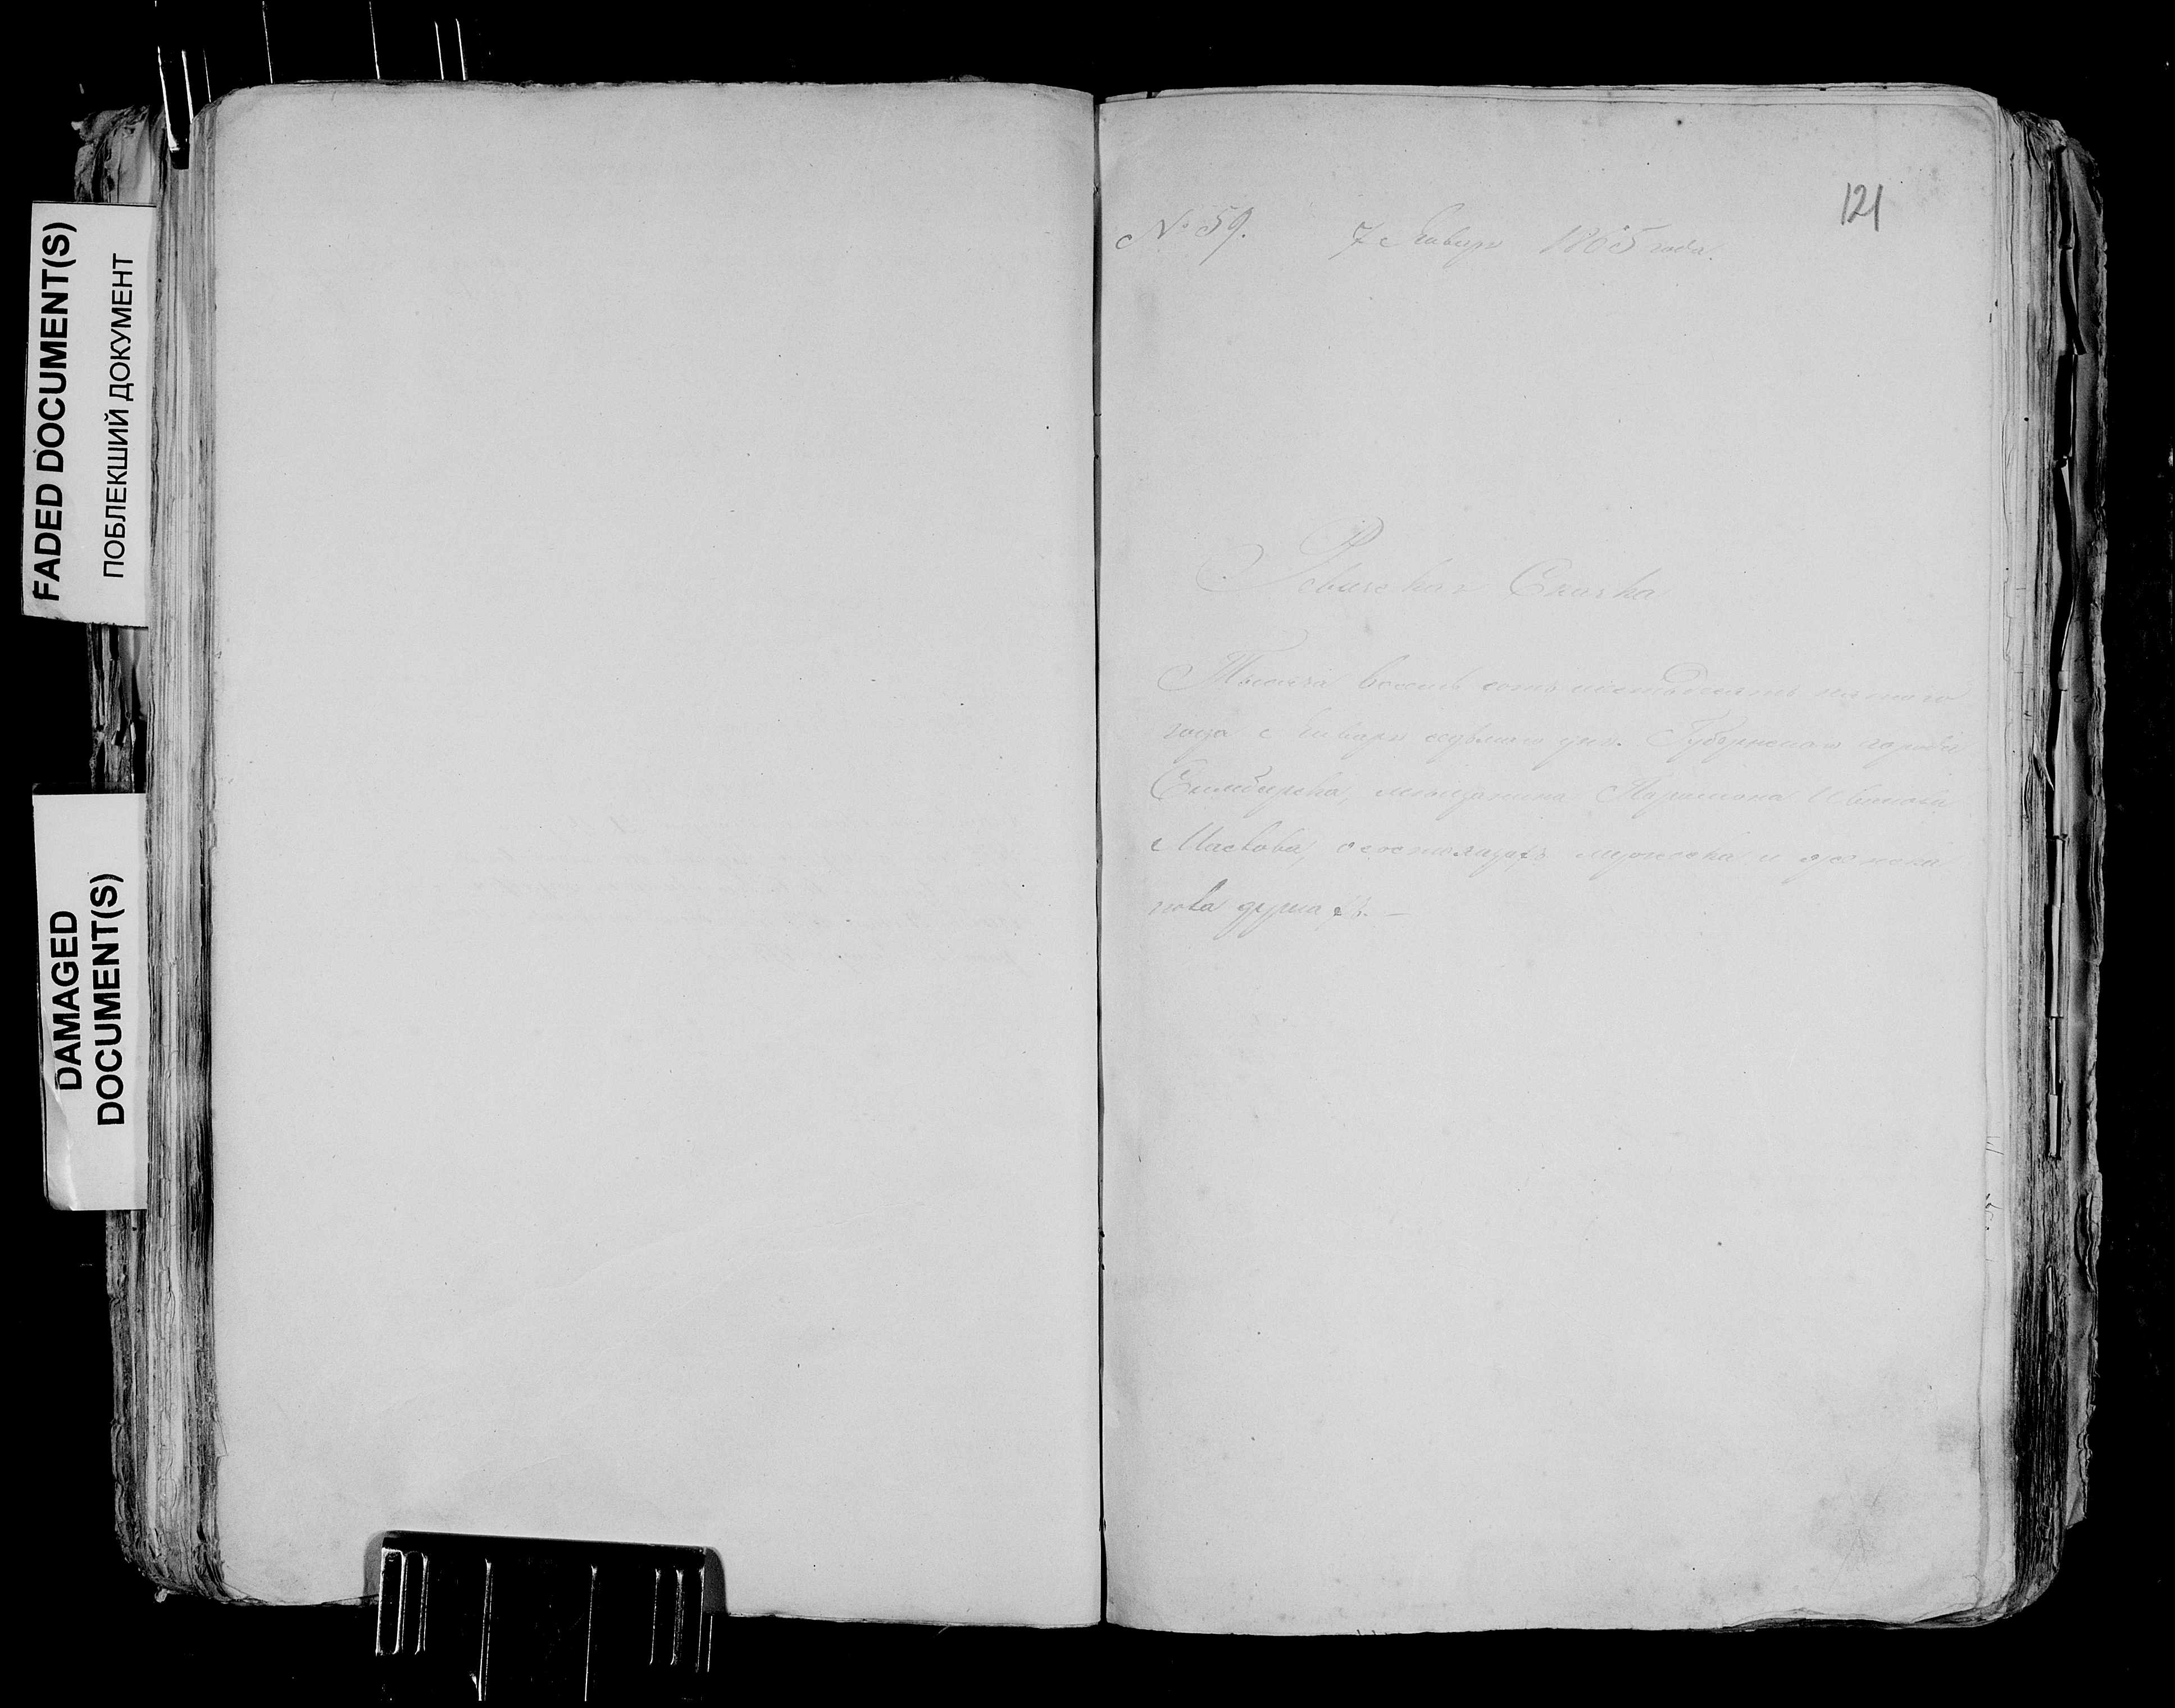 FADED DOCUMENT(S)
ПОБЛЕКШИЙ ДОКУМЕНТ
DAMAGED
DOCUMENT(S)
121
№ 59. 7 Января 1865 года.
Ревизская Сказка
Тысяча восемь сотъ шестьдесятъ пятого
года Января седьмого дня. Губернского города
Симбирска, мещанина Парамона
Маслова, о состоящихъ мужеска и женска
пола душахъ. —